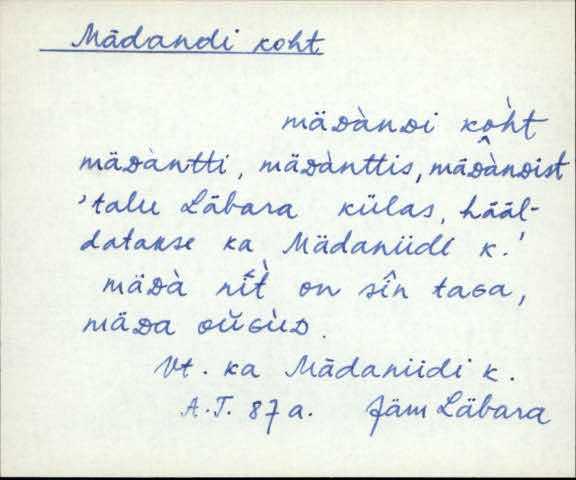 Mädandi koht
mäᴅàɴᴅi koh̀t
mäᴅàntti, mäᴅànttis, mäᴅàɴᴅist
'talu Läbara külas, hääl-
datakse ka Mädaniidi k.'
mäᴅà nīt̀ on sîn taɢa,
mäᴅa oŭɢùᴅ.
Vt. ka Mädaniidi k.
A.T. 87 a. Jäm Läbara